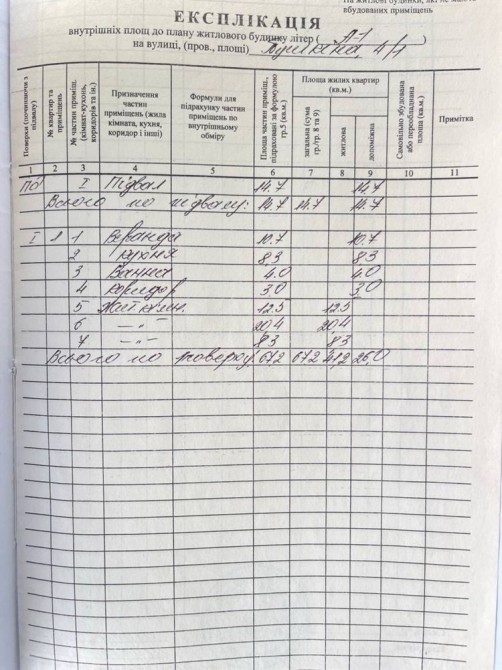 вбудованих приміщень
ЕКСПЛІКАЦІЯ
внутрішніх площ до плану житлового будинку літер ( А-1 )
на вулиці, (пров., площі)
Поверхи (починаючи з підвалу)
№ квартир та приміщень
№ частин приміщ. (кімнат-кухонь, коридорів та ін.)
Призначення частин приміщень (жила кімната, кухня, коридор і інші)
Формули для підрахунку частин приміщень по внутрішньому обміру
Площа частин приміщ., підрахованні за формулою гр.5 (кв.м.)
Площа жилих квартир (кв.м.)
загальна (сума гр./гр. 8 та 9)
житлова
допоміжна
Самовільно збудована або переобладнана площа (кв.м.)
Примітка
1 2 3 4 5 6 7 8 9 10 11
Пд I Підвал 14.7 14.7
Всього по підвалу: 14.7 14.7 14.7
I 1 1 Веранда 10.7 10.7
2 кухня 8.3 8.3
3 Ванна 4.0 4.0
4 коридор 3.0 3.0
5 Жит. кімн. 12.5 12.5
6 —"— 20.4 20.4
7 —"— 8.3 8.3
Всього по поверху: 67.2 67.2 41.2 26.0